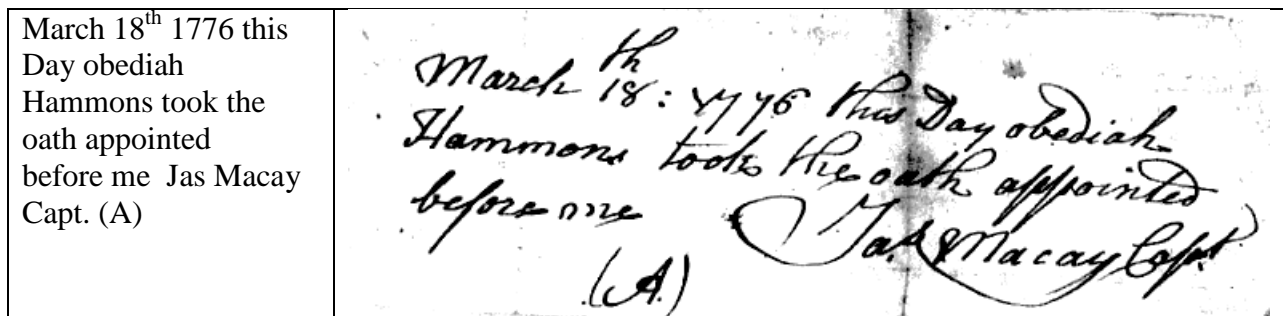 March 18th 1776 this
Day obediah
Hammons took the
oath appointed
before me Jas Macay
Capt. (A)
March 18th: 1776 this Day obediah
Hammons took the oath appointed
before me Jas Macay Capt
(A.)